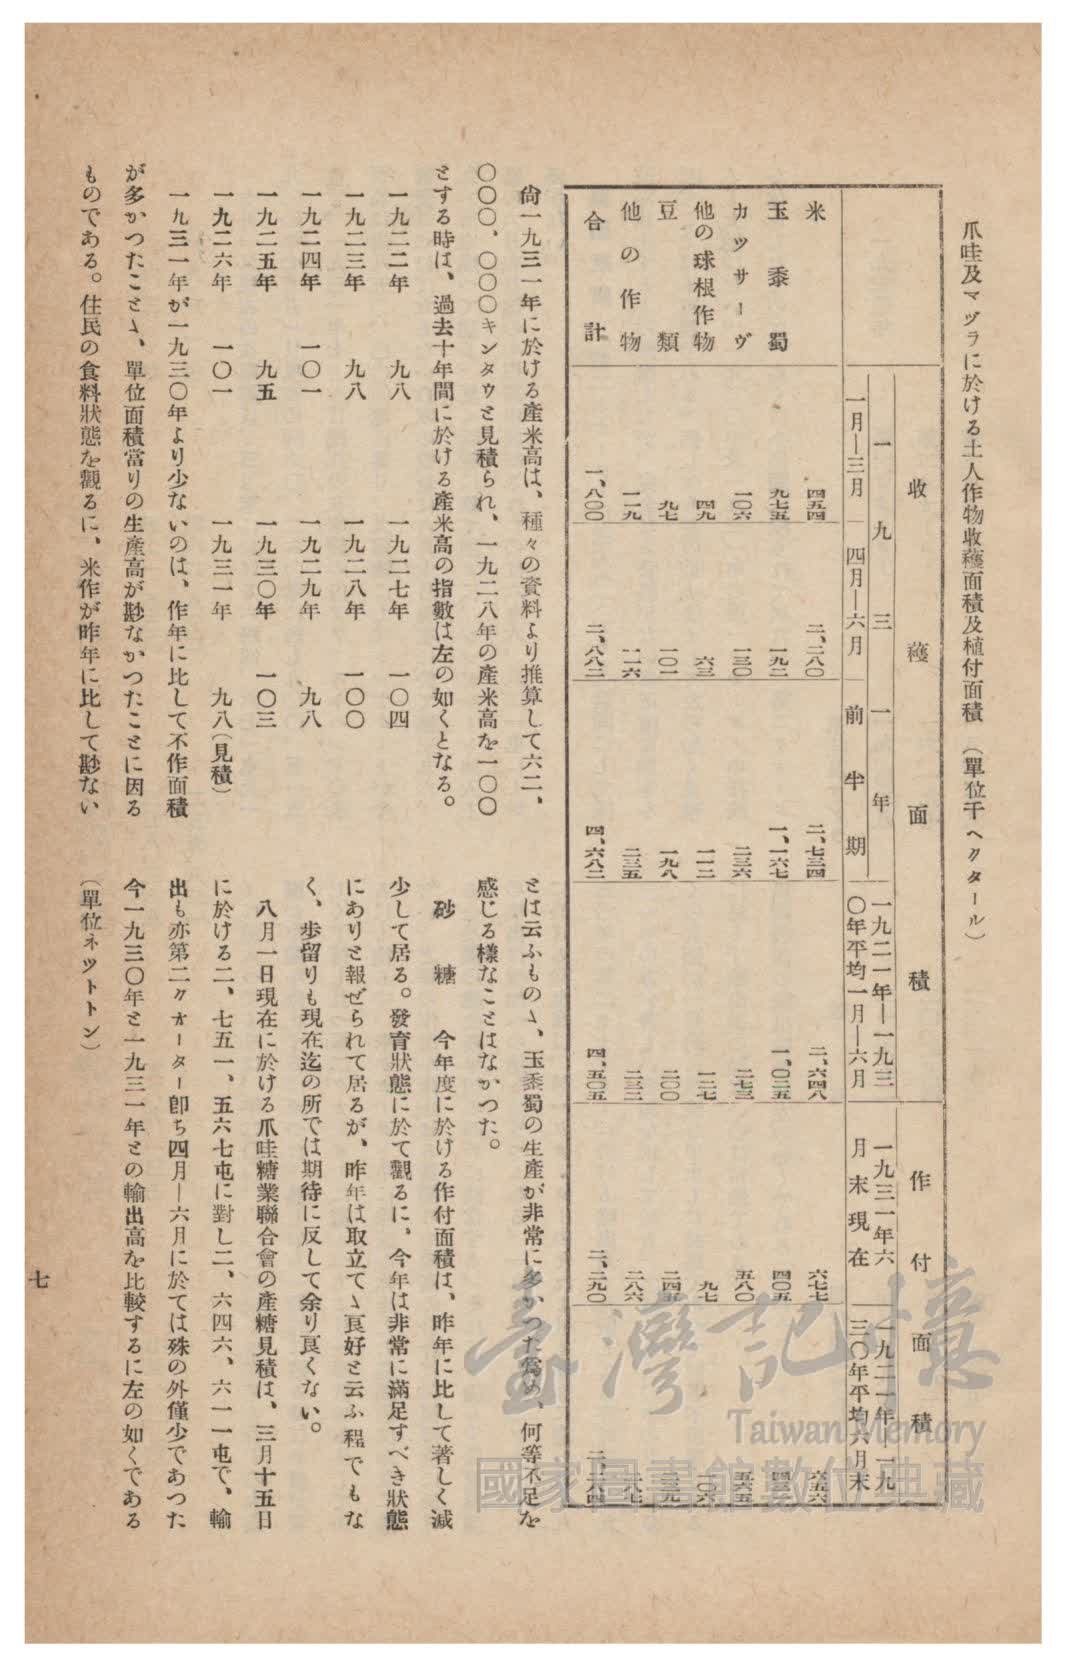 爪哇及マヅラに於ける土人作物收穫面積及植付面積 (單位千ヘクタール)
收穫面積
作付面積
一九三一年
一月—三月
四月—六月
前半期
一九二一年—一九三
〇年平均一月—六月
一九三一年六
月末現在
一九二一年—一九
三〇年平均六月末
米 四五四 二、二八〇 二、七三四 二、六四八 六七七 六五六
玉蜀黍 九七五 一九二 一、一六七 一、〇二五 四〇五
カツサーヴ 一〇六 一三〇 二三六 二七三 五八〇 五六五
他の球根作物 四九 六三 一一二 一二七 九七 一〇六
豆類 九七 一〇一 一九八 二〇〇 二四五
他の作物 一一九 一一六 二三五 二三二 二八六
合計 一、八〇〇 二、八八二 四、六八二 四、五〇五 二、二九〇
尙一九三一年に於ける產米高は、種々の資料より推算して六二、
〇〇〇、〇〇〇キンタウと見積られ、一九二八年の產米高を一〇〇
とする時は、過去十年間に於ける產米高の指數は左の如くとなる。
一九二二年 九八 一九二七年 一〇四
一九二三年 九八 一九二八年 一〇〇
一九二四年 一〇一 一九二九年 九八
一九二五年 九五 一九三〇年 一〇三
一九二六年 一〇一 一九三一年 九八(見積)
一九三一年が一九三〇年より少ないのは、作年に比して不作面積
が多かつたことゝ、單位面積當りの生產高が尠なかつたことに因る
ものである。住民の食料狀態を觀るに、米作が昨年に比して尠ない
とは云ふものゝ、玉黍蜀の生產が非常に多かつた爲め、何等不足を
感じる樣なことはなかつた。
砂糖 今年度に於ける作付面積は、昨年に比して著しく減
少して居る。發育狀態に於て觀るに、今年は非常に滿足すべき狀態
にありと報ぜられて居るが、昨年は取立てゝ良好と云ふ程でもな
く、步留りも現在迄の所では期待に反して余り良くない。
八月一日現在に於ける爪哇糖業聯合會の產糖見積は、三月十五日
に於ける二、七五一、五六七屯に對し二、六四六、六一一屯で、輸
出も亦第二クオーター卽ち四月—六月に於ては殊の外僅少であつた
今一九三〇年と一九三一年との輸出高を比較するに左の如くである
(單位ネツトトン)
七
臺灣記憶
Taiwan Memory
國家圖書館數位典藏